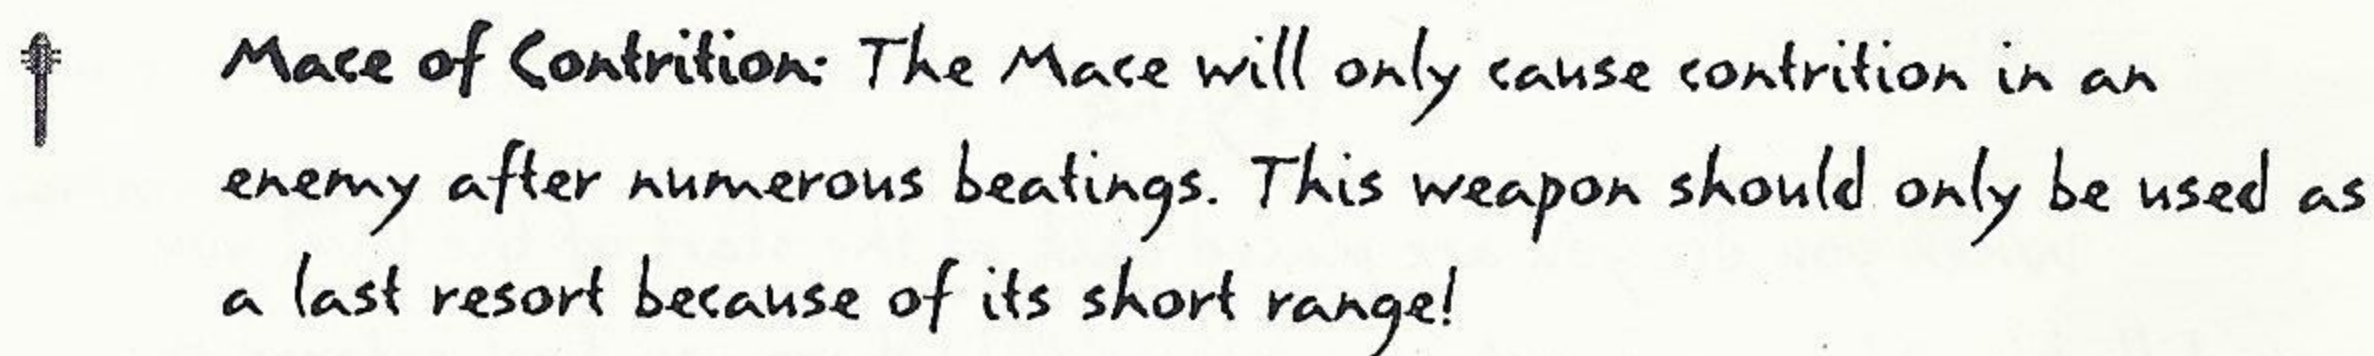 Mace of Contrition: The Mace will only cause contrition in an
enemy after numerous beatings. This weapon should only be used as
a last resort because of its short range!